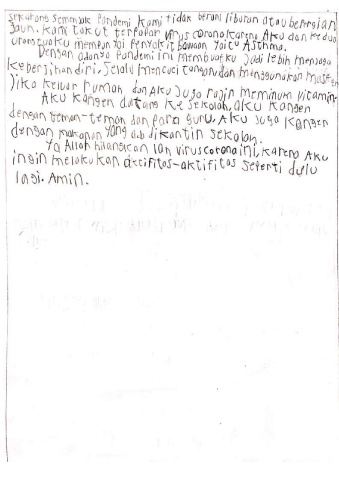 sekarang semenjak Pandemi kami tidak berani liburan atau bepergian
Jauh. kami takut terpapar virus corona karena Aku dan kedua
orang tuaku mempunyai penyakit bawaan yaitu Asthma.
Dengan adanya Pandemi ini membuatku jadi lebih menjaga
kebersihan diri, selalu mencuci tangan dan menggunakan masker
Jika keluar rumah dan Aku Juga rajin meminum vitamin
Aku kangen datang ke sekolah, aku kangen
dengan teman-teman dan para guru, Aku Juga kangen
dengan makanan yang ada dikantin sekolah.
Ya Allah hilangkan lah virus corona ini, karena Aku
ingin melakukan aktifitas-aktifitas seperti dulu
lagi. Amin.